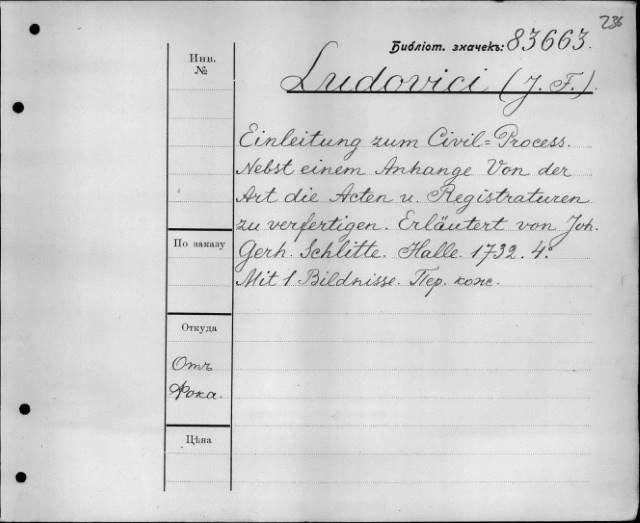 236
Библіот. значекъ: 83663.
Инв. №
Ludovici (J. F.).
Einleitung zum Civil=Process.
Nebst einem Anhange Von der
Art die Acten u. Registraturen
zu verfertigen. Erläutert von Joh.
По заказу
Gerh. Schlitte. Halle. 1732. 4º.
Mit 1 Bildnisse. Пер. кож.
Откуда
Отъ
Фока.
Цѣна